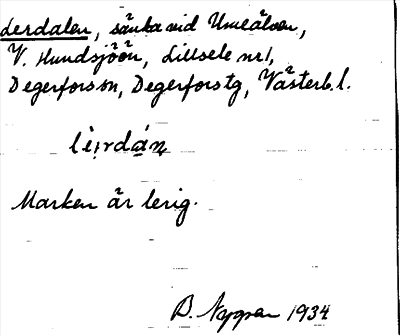 Lerdalen, sänka vid Umeälven,
V. Hundsjöön, Lillsele nr 1,
Degerforssn, Degerforstg, Västerb. l.
Marken är lerig.
B. Nygren 1934